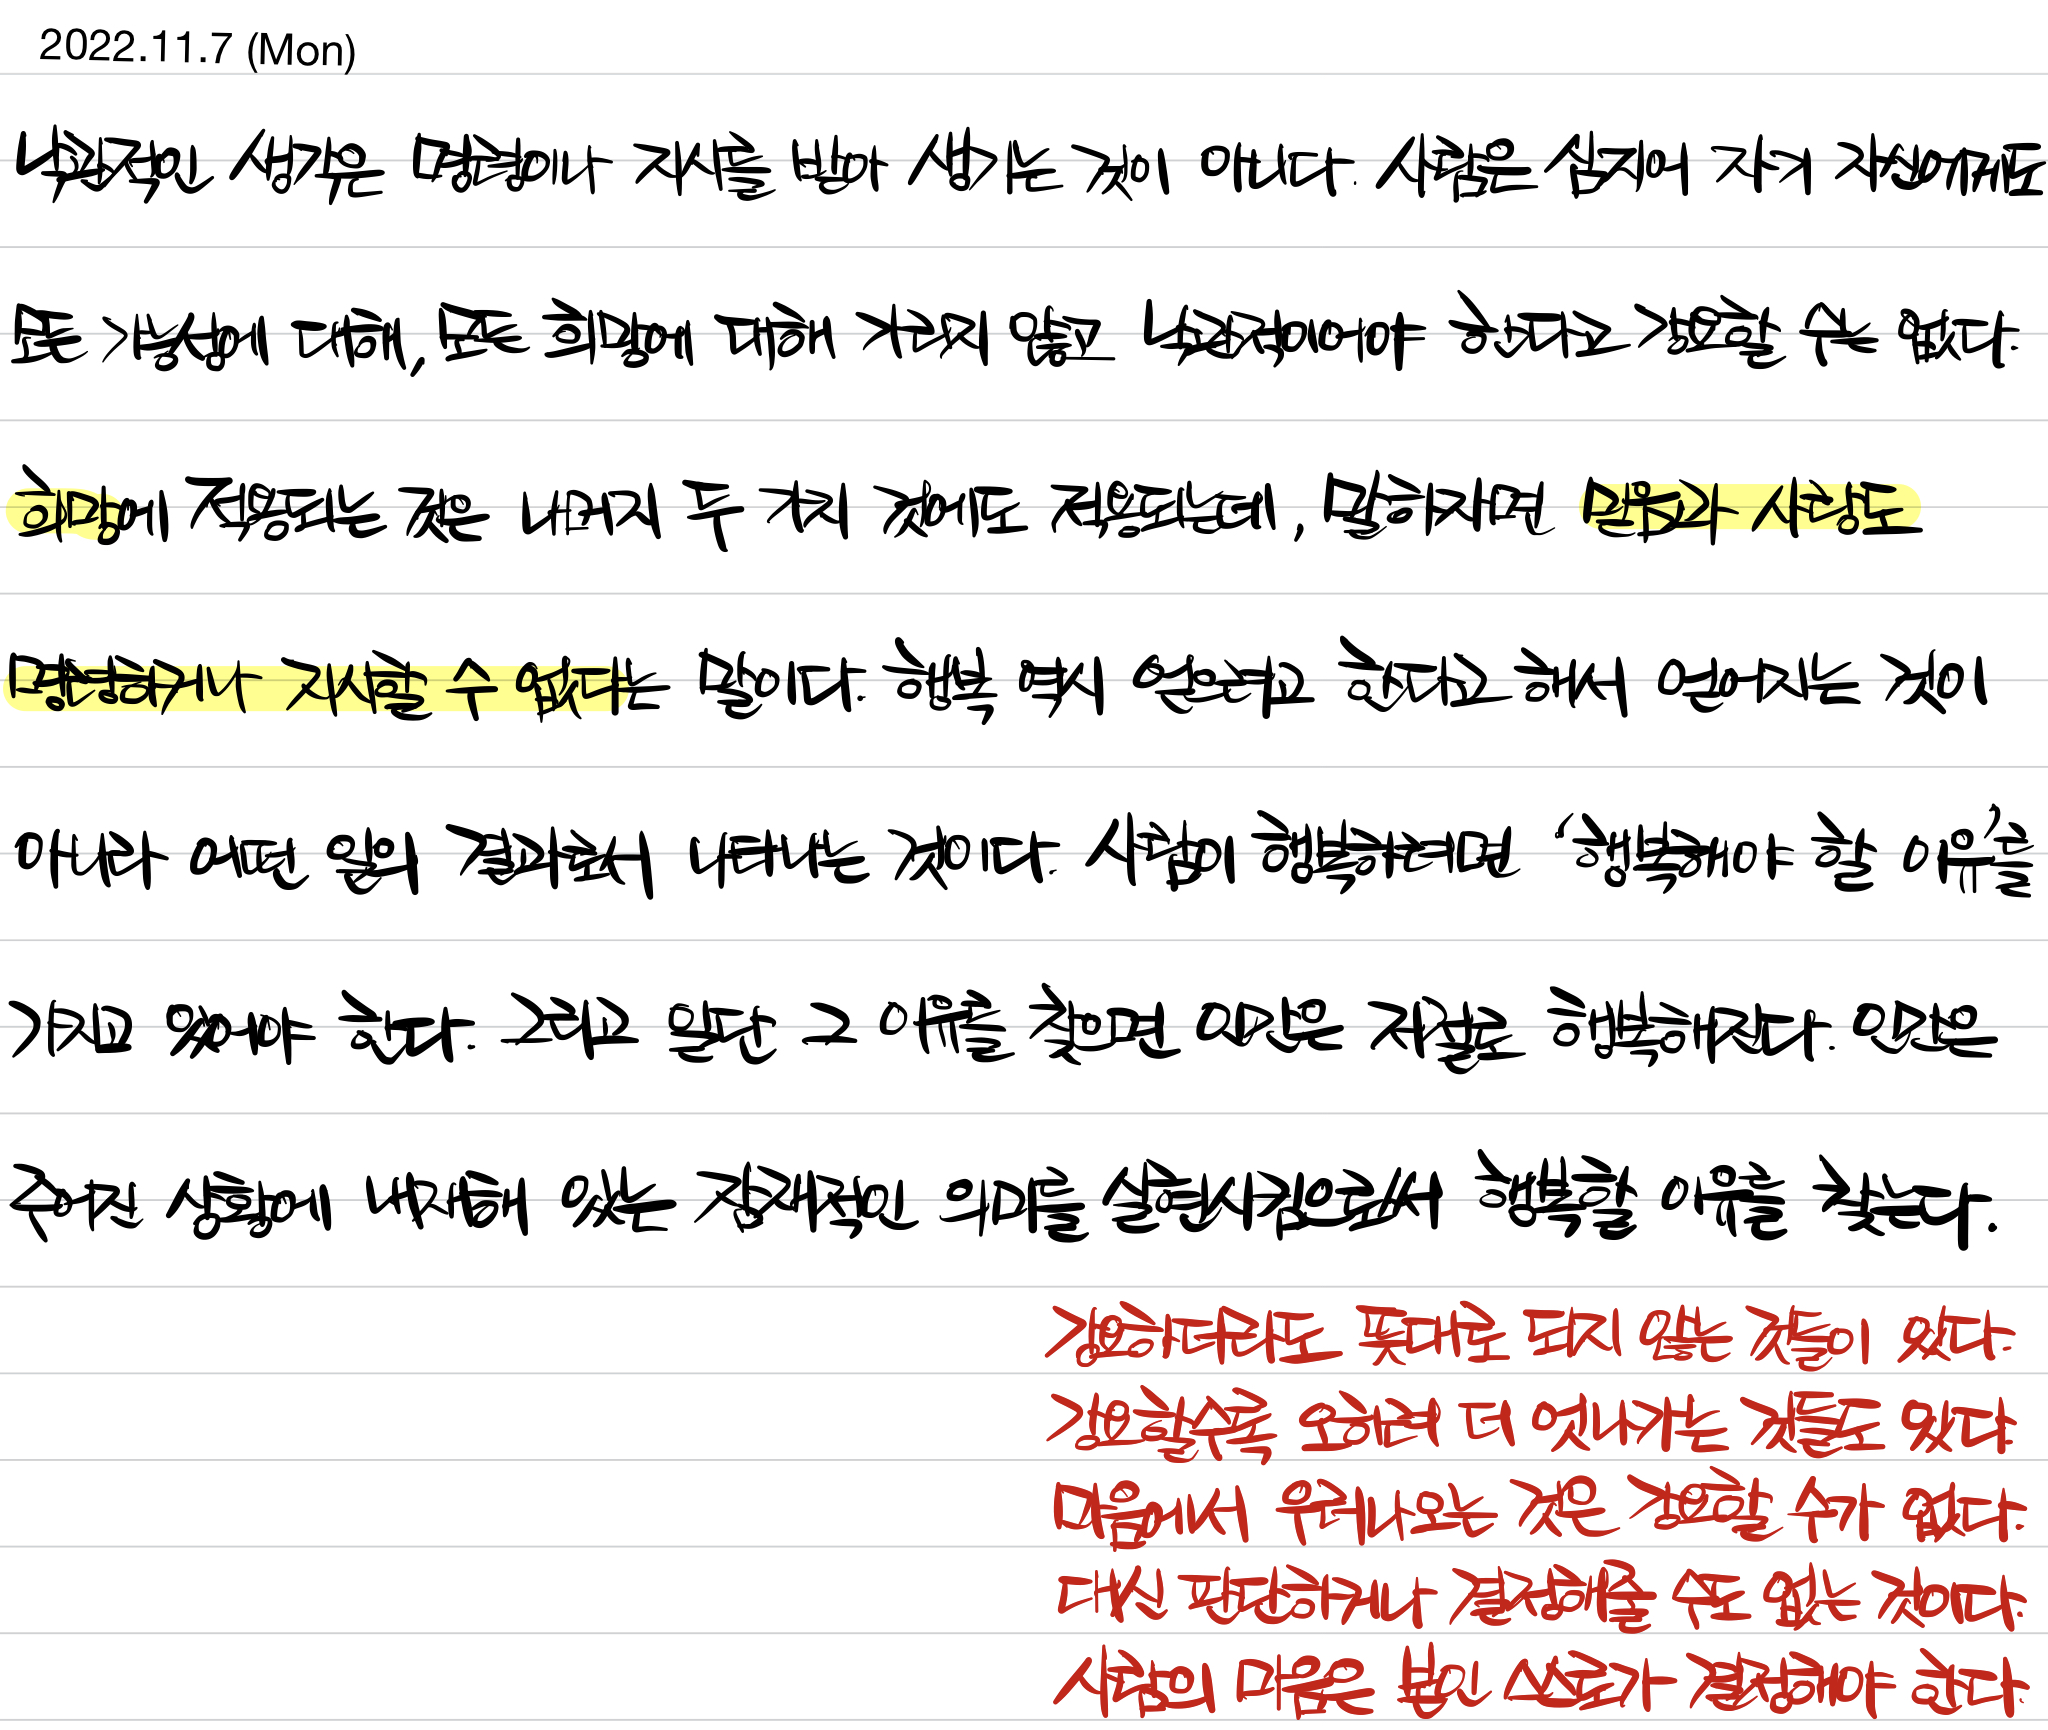 2022.11.7 (Mon)
낙관적인 생각은 명령이나 지시를 받아 생기는 것이 아니다. 사람은 심지어 자기 자신에게도
모든 가능성에 대해, 모든 희망에 대해 가리지 않고 낙관적이어야 한다고 강요할 수는 없다.
희망에 적용되는 것은 나머지 두 가지 것에도 적용되는데, 말하자면 믿음과 사랑도
명령하거나 지시할 수 없다는 말이다. 행복 역시 얻으려고 한다고 해서 얻어지는 것이
아니라 어떤 일의 결과로서 나타나는 것이다. 사람이 행복하려면 '행복해야 할 이유'를
가지고 있어야 한다. 그리고 일단 그 이유를 찾으면 인간은 저절로 행복해진다. 인간은
주어진 상황에 내재해 있는 잠재적인 의미를 실현시킴으로써 행복할 이유를 찾는다.
강요하더라도 뜻대로 되지 않는 것들이 있다.
강요할수록 오히려 더 엇나가는 것들도 있다
마음에서 우러나오는 것은 강요할 수가 없다.
대신 판단하거나 결정해줄 수도 없는 것이다.
사람의 마음은 본인 스스로가 결정해야 한다.